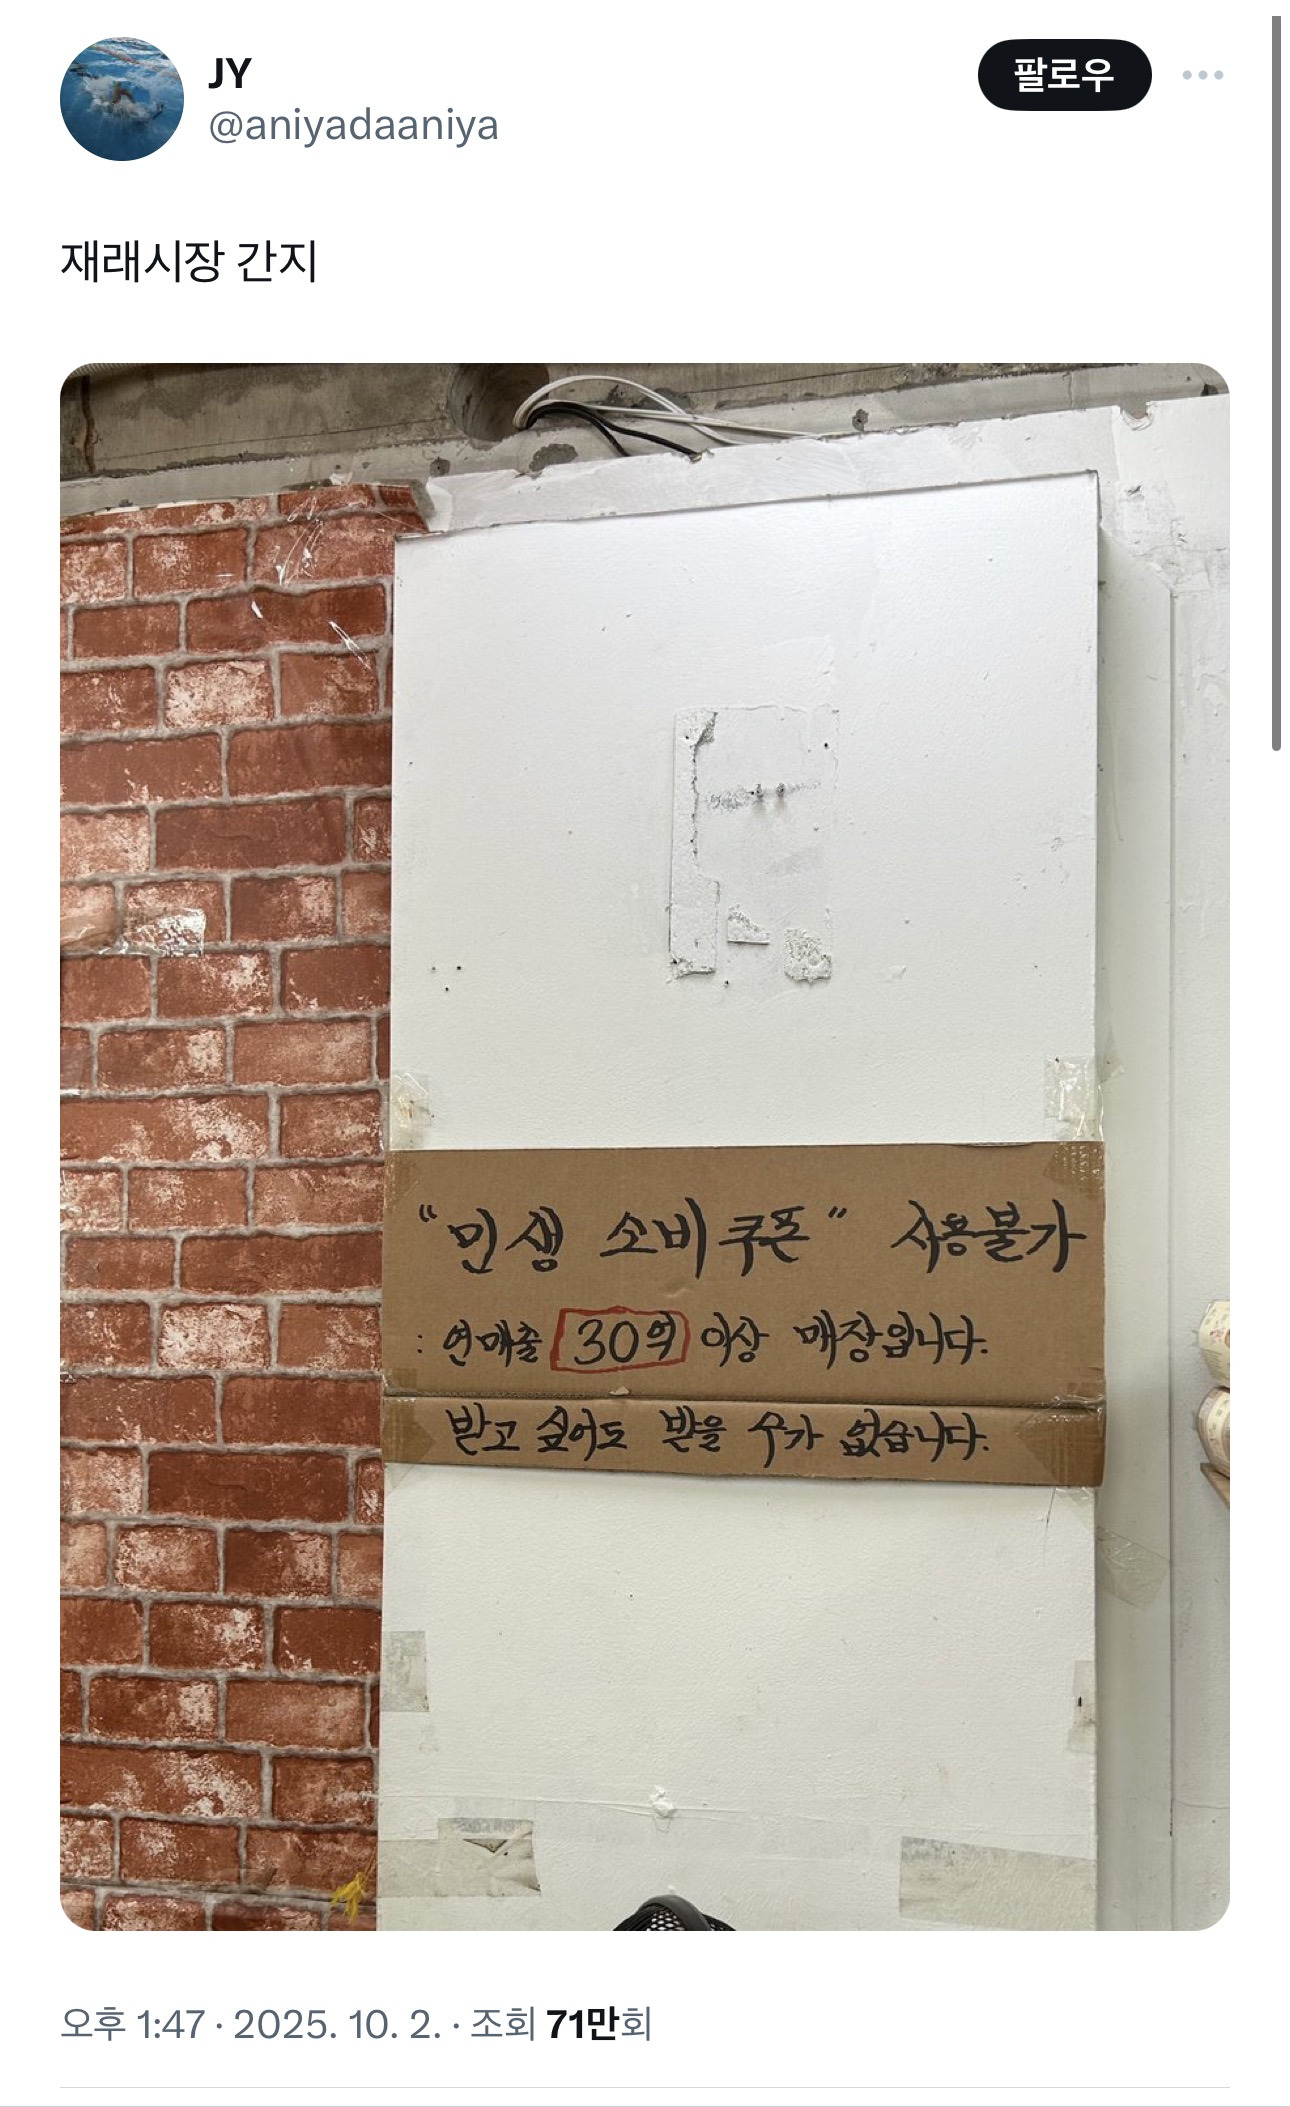 JY
@aniyadaaniya
팔로우
재래시장 간지
“민생 소비쿠폰” 사용불가
: 연매출 30억 이상 매장입니다.
받고 싶어도 받을 수가 없습니다.
오후 1:47 · 2025. 10. 2. · 조회 71만회